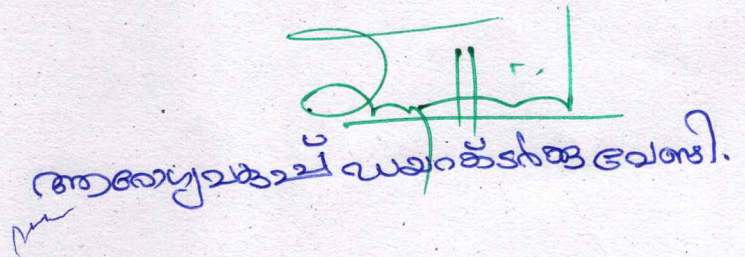 ആരോഗ്യവകുപ്പ് ഡയറക്ടർക്കു വേണ്ടി.